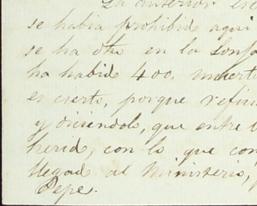 La anterior
se habia prohibido aqui
se ha dho en la Lonja
ha habido 400. muerto
es cierto, porque
y diciendole, que entre
herido, con lo que
llegado al Ministerio,
Pepe.